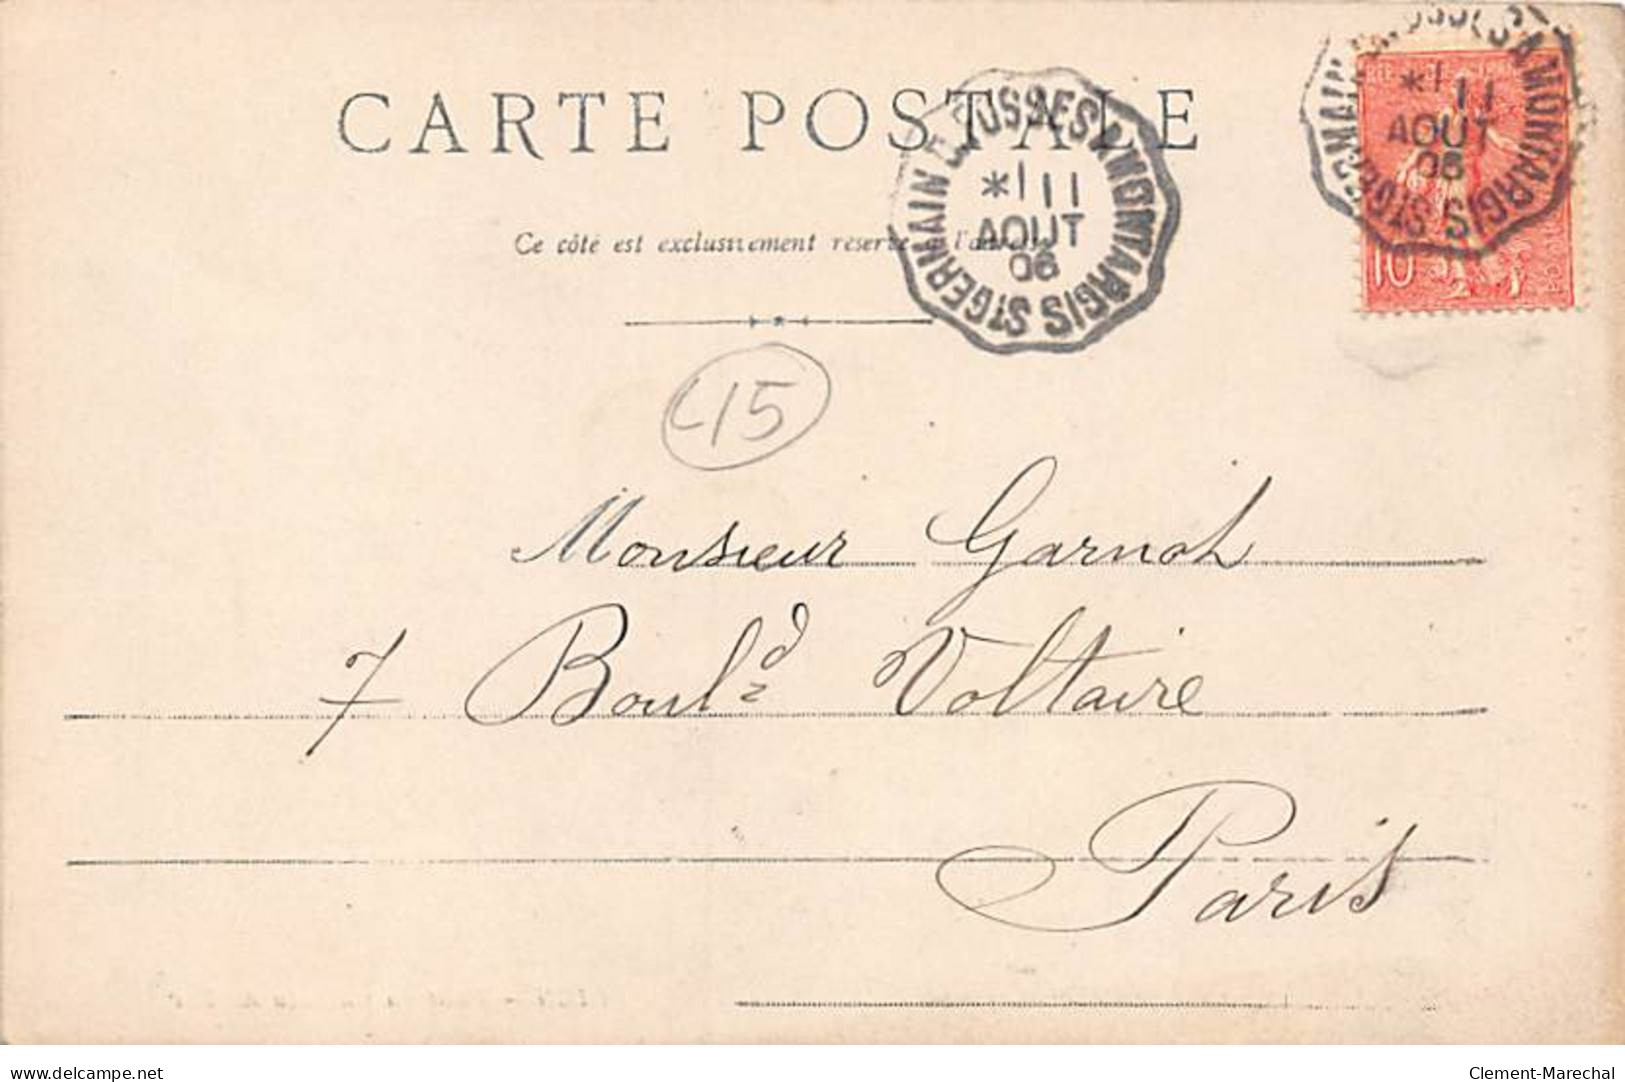 CARTE POSTALE
Ce côté est exclusivement réservé à l'adresse
ST GERMAIN D. FOSSES A MONTARGIS
* 11
AOUT
06
* 11
AOUT
06
10
45
Monsieur Garnot
7 Boul.d Voltaire
Paris
delcampe.net
Clement-Marechal